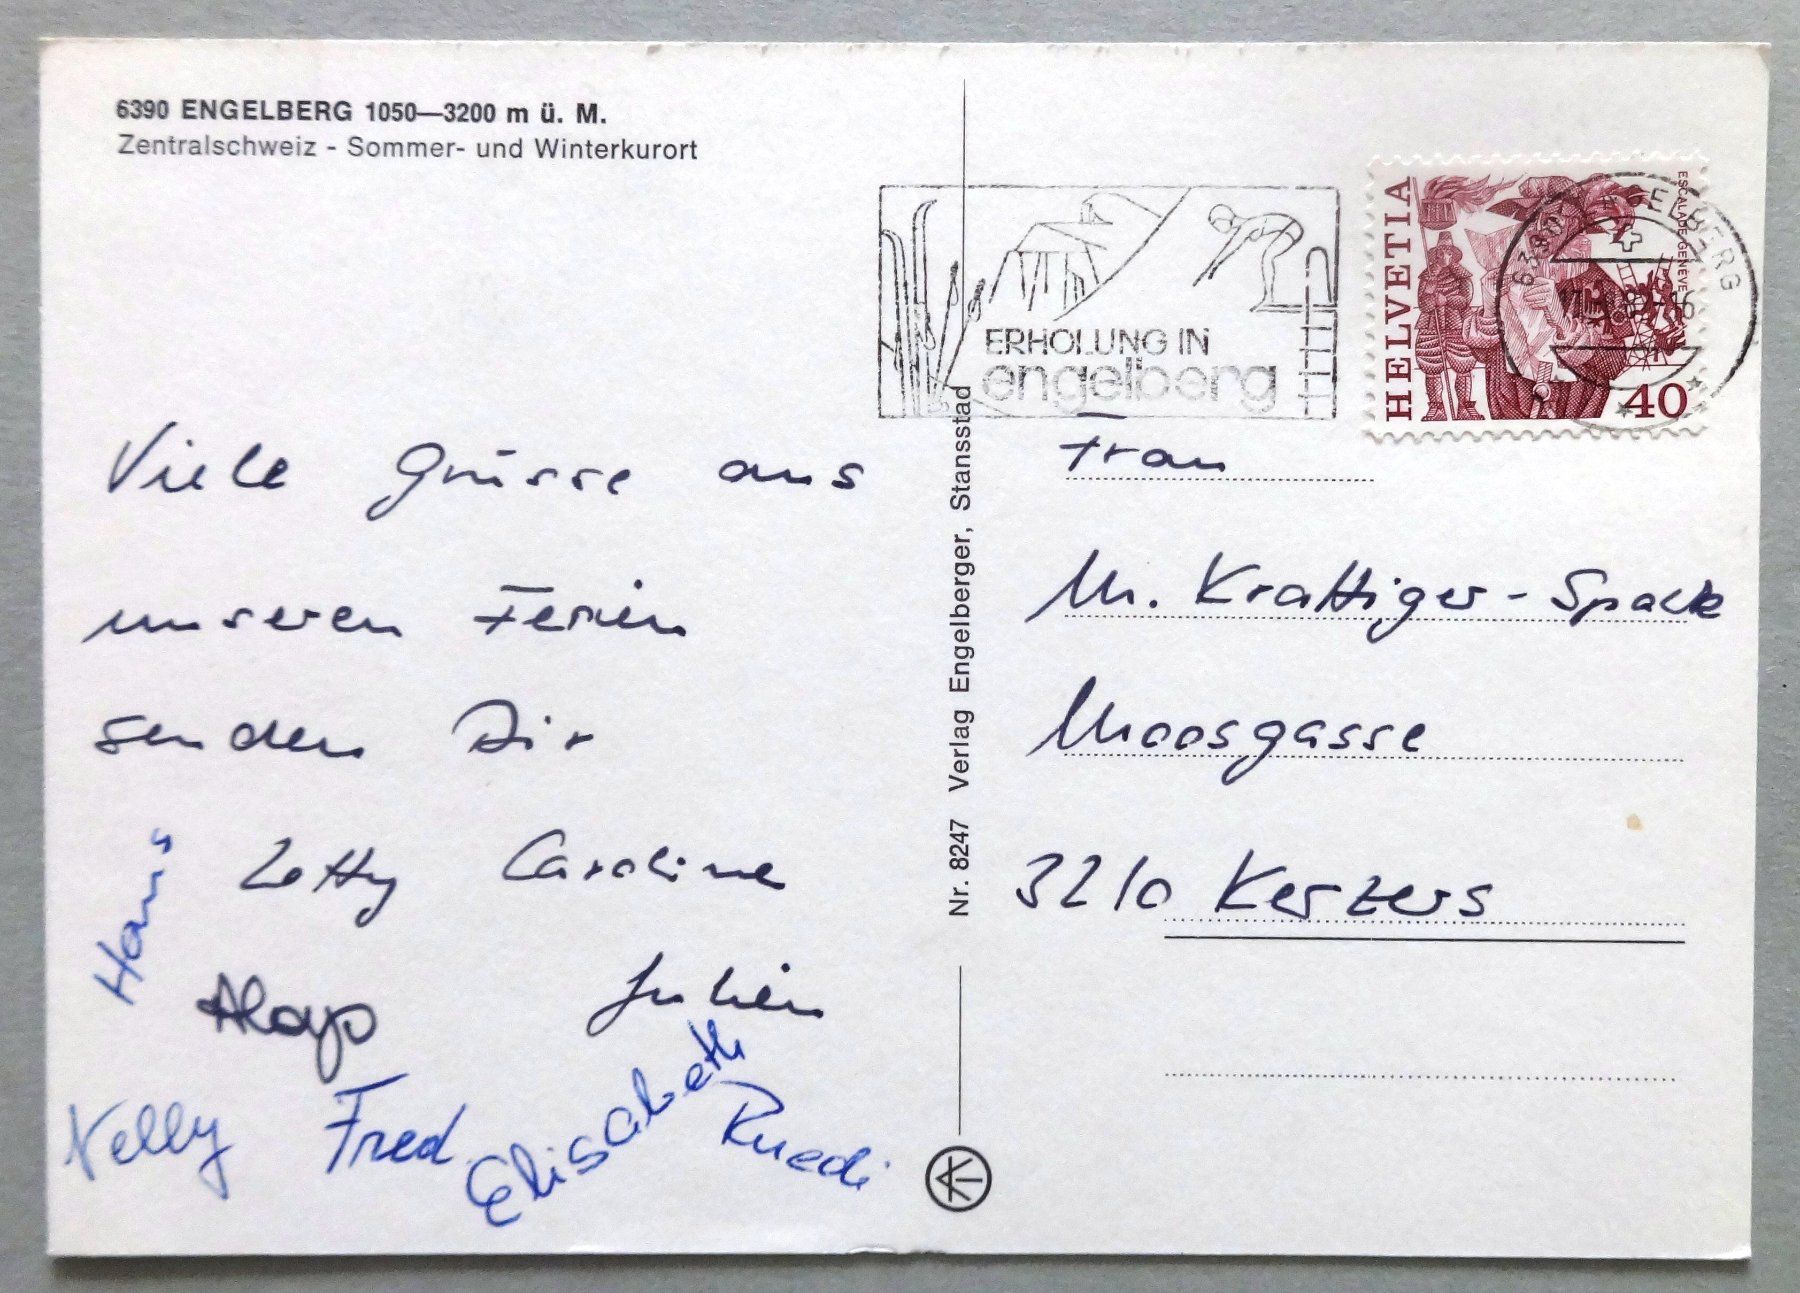 6390 ENGELBERG 1050—3200 m ü. M.
Zentralschweiz - Sommer- und Winterkurort
Viele Grüsse aus
unseren Ferien
senden Dir
Hans
Letty Caroline
Aloys Julien
Nelly Fred Elisabeth Ruedi
Nr. 8247 Verlag Engelberger, Stansstad
ERHOLUNG IN
engelberg
HELVETIA
ESCALADE GENEVE
40
6390 ENGELBERG
Frau
M. Krattiger-Spack
Moosgasse
3210 Kerzers